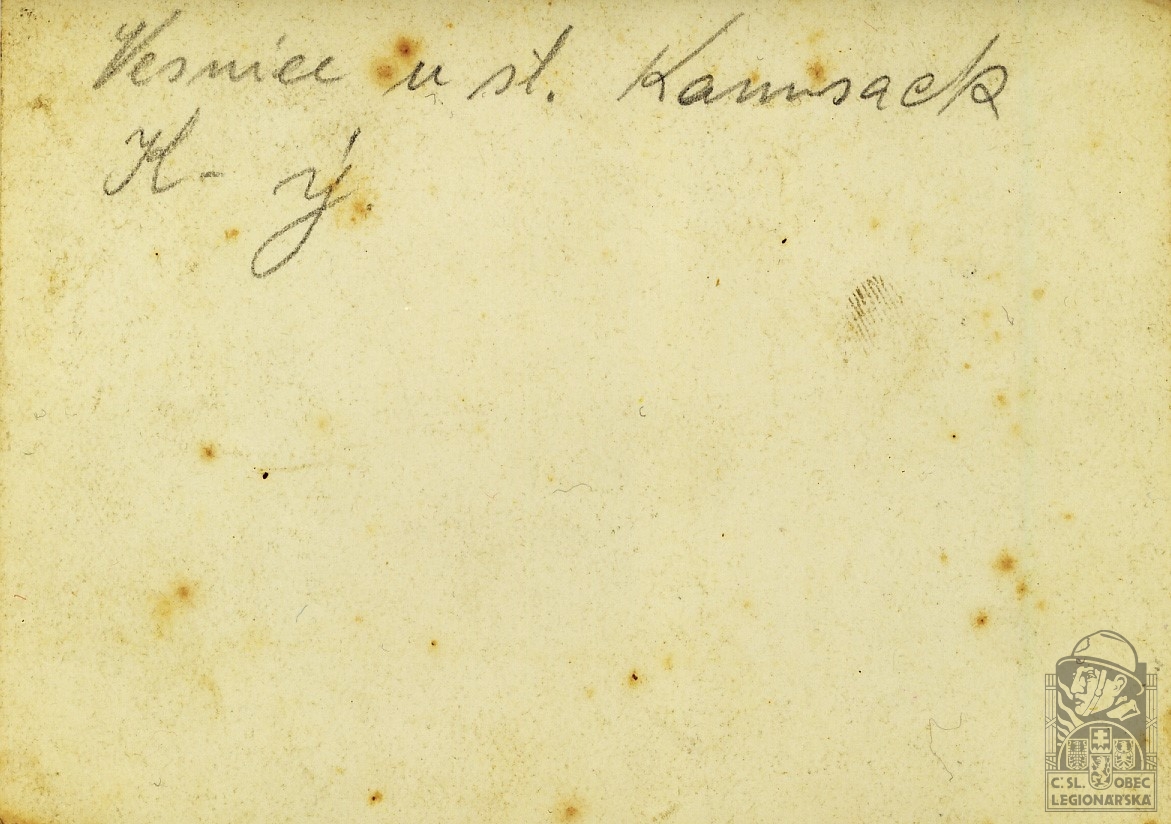 Vesnice u st. Kamusack
K-ý.
Č.SL. OBEC
LEGIONÁŘSKÁ